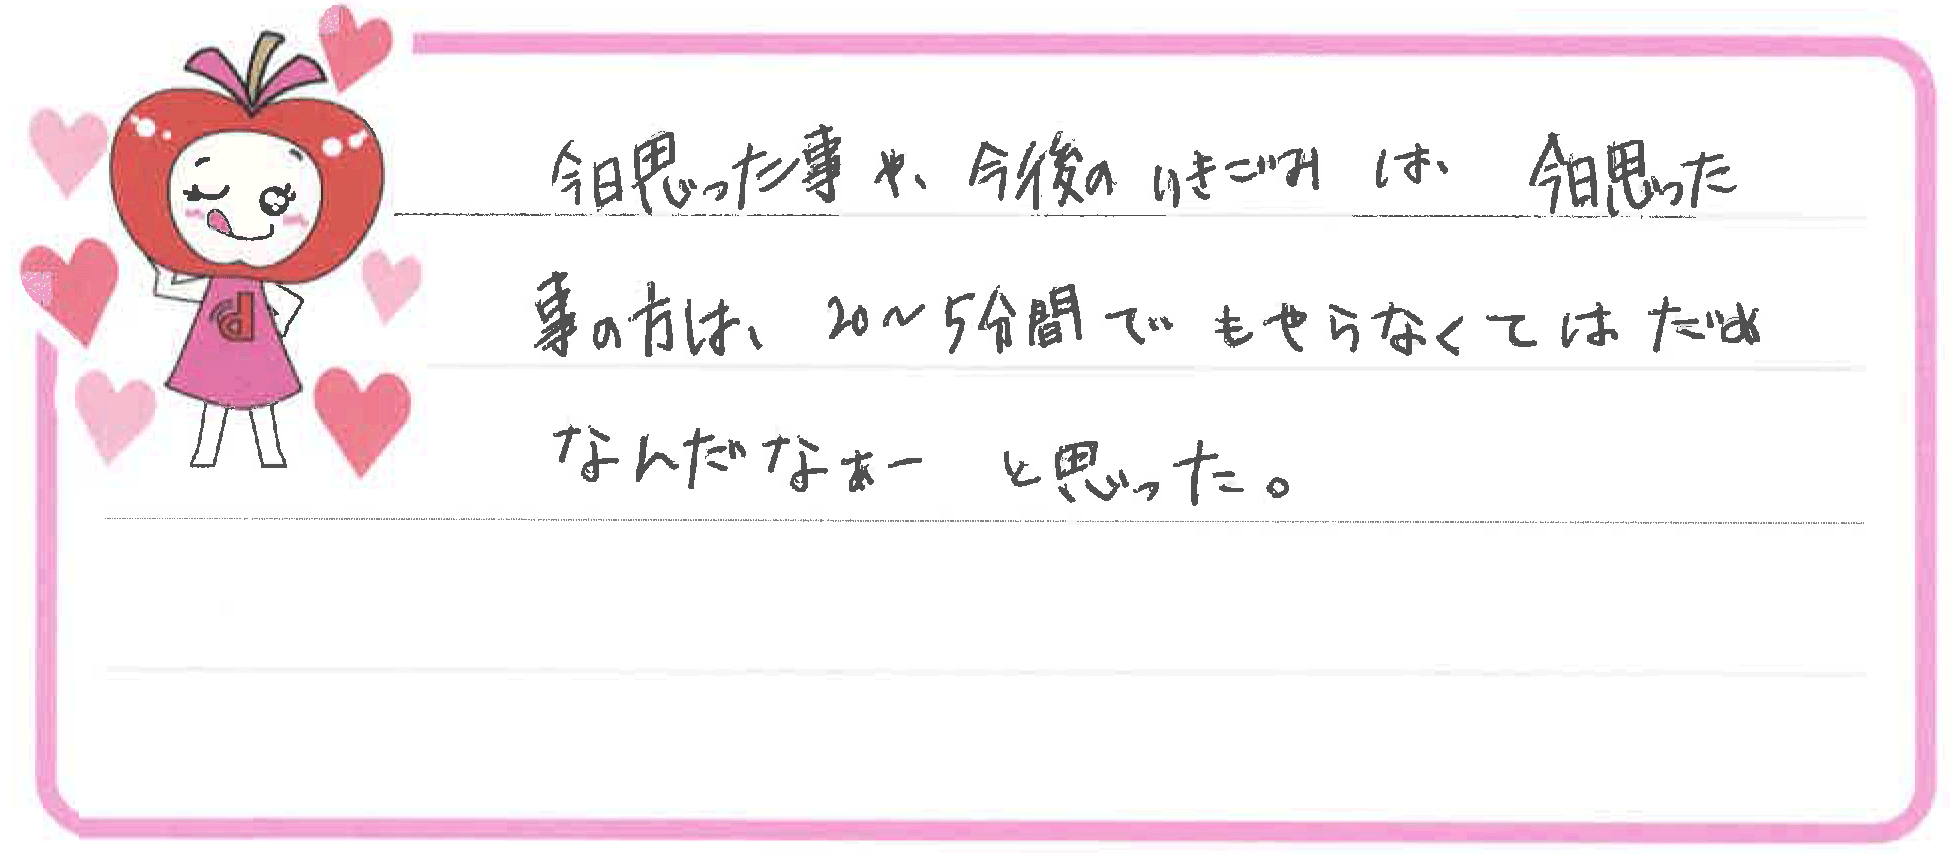 今日思った事や、今後のいきごみは、今日思った
事の方は、20〜5分間でもやらなくてはだめ
なんだなぁーと思った。